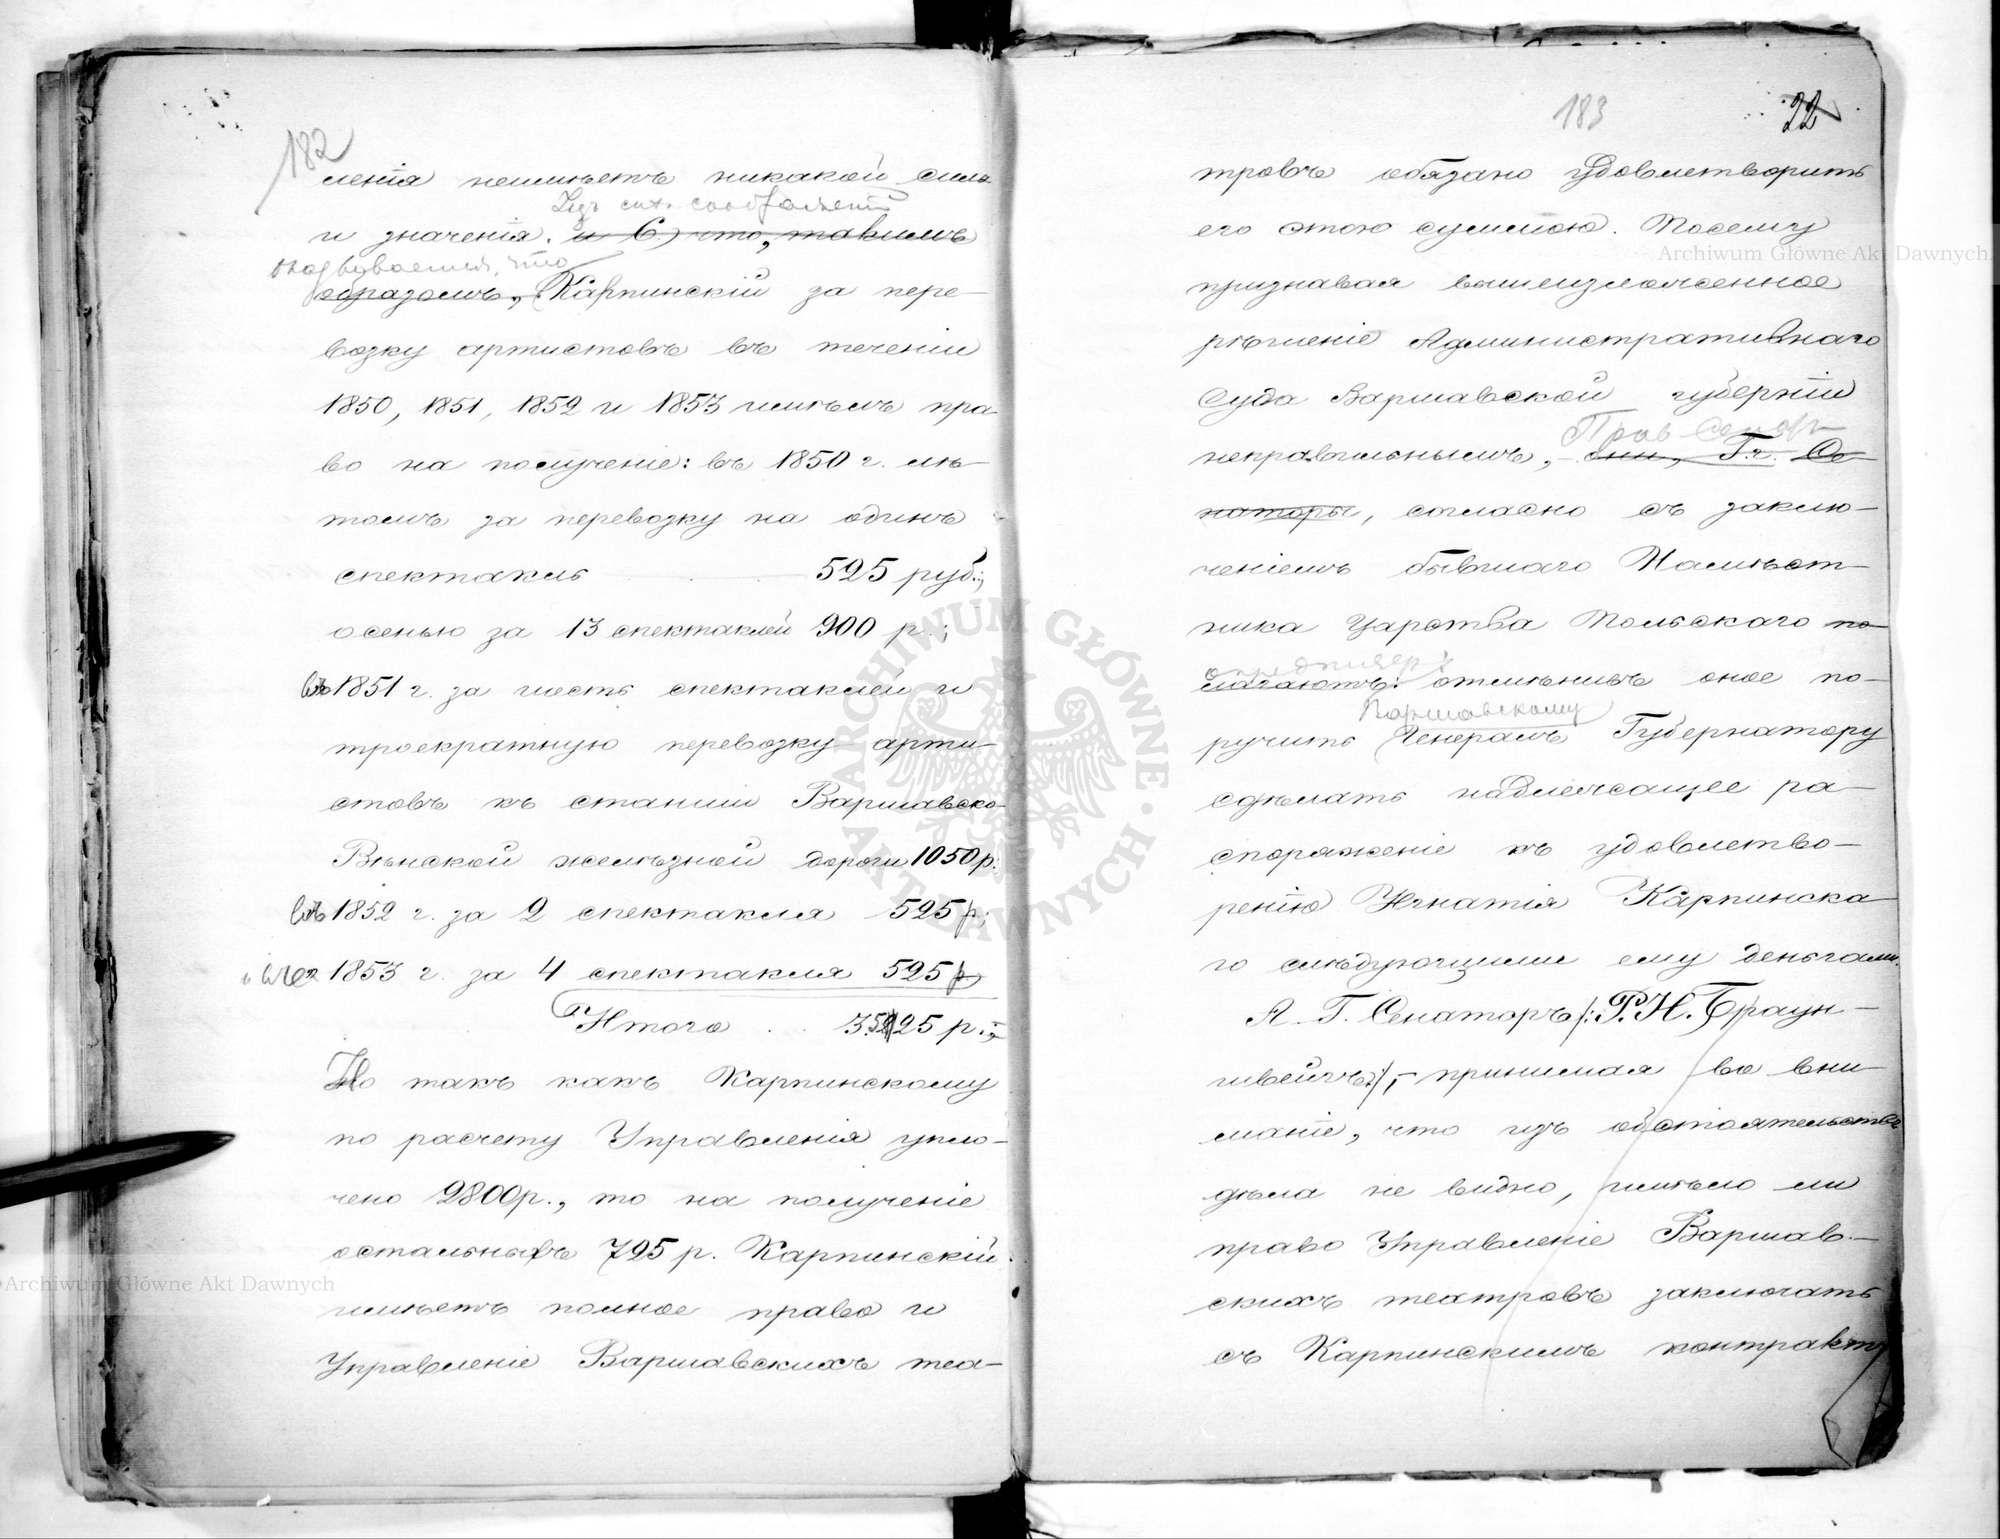 182
ленія неимѣетъ никакой силы
Изъ сихъ соображеній
и значенія. и 6) что, такимъ
оказывается, что
образомъ, Карпинскій за пере-
возку артистовъ въ теченіи
1850, 1851, 1852 и 1853 имѣлъ пра-
во на полученіе: въ 1850 г. лѣ-
томъ за перевозку на одинъ
спектакль 525 руб.;
осенью за 13 спектаклей 900 р.;
въ 1851 г. за шесть спектаклей и
троекратную перевозку арти-
стовъ къ станціи Варшавско-
Вѣнской желѣзной дороги 1050 р.
въ 1852 г. за 2 спектакля 525 р;
и въ 1853 г. за 4 спектакля 525 р
Итого . . 3.525 р.;
Но такъ какъ Карпинскому
по расчету Управленія упло-
чено 2800 р., то на полученіе
остальныхъ 725 р. Карпинскій
имѣетъ полное право и
Управленіе Варшавскихъ теа-
183 22
тровъ обязано удовлетворить
его этою суммою. Посему
признавая вышеизложенное
рѣшеніе Административнаго
Суда Варшавской губерніи
Прав. Сенатъ
неправильнымъ, они, Г.г. Се-
наторы, согласно съ заклю-
ченіемъ бывшаго Намѣст-
ника Царства Польскаго по-
опредѣляетъ:
лагаютъ: отмѣнивъ оное по-
Варшавскому
ручить Генералъ Губернатору
сдѣлать надлежащее ра-
споряженіе къ удовлетво-
ренію Игнатія Карпинска-
го слѣдующими ему деньгами.
А Г. Сенаторъ /: Р. Н. Браун-
швейгъ :/, – принимая во вни-
маніе, что изъ обстоятельствъ
дѣла не видно, имѣло ли
право Управленіе Варшав-
скихъ театровъ заключать
съ Карпинскимъ контракту
Archiwum Główne Akt Dawnych
Archiwum Główne Akt Dawnych
ARCHIWUM GŁÓWNE AKT DAWNYCH